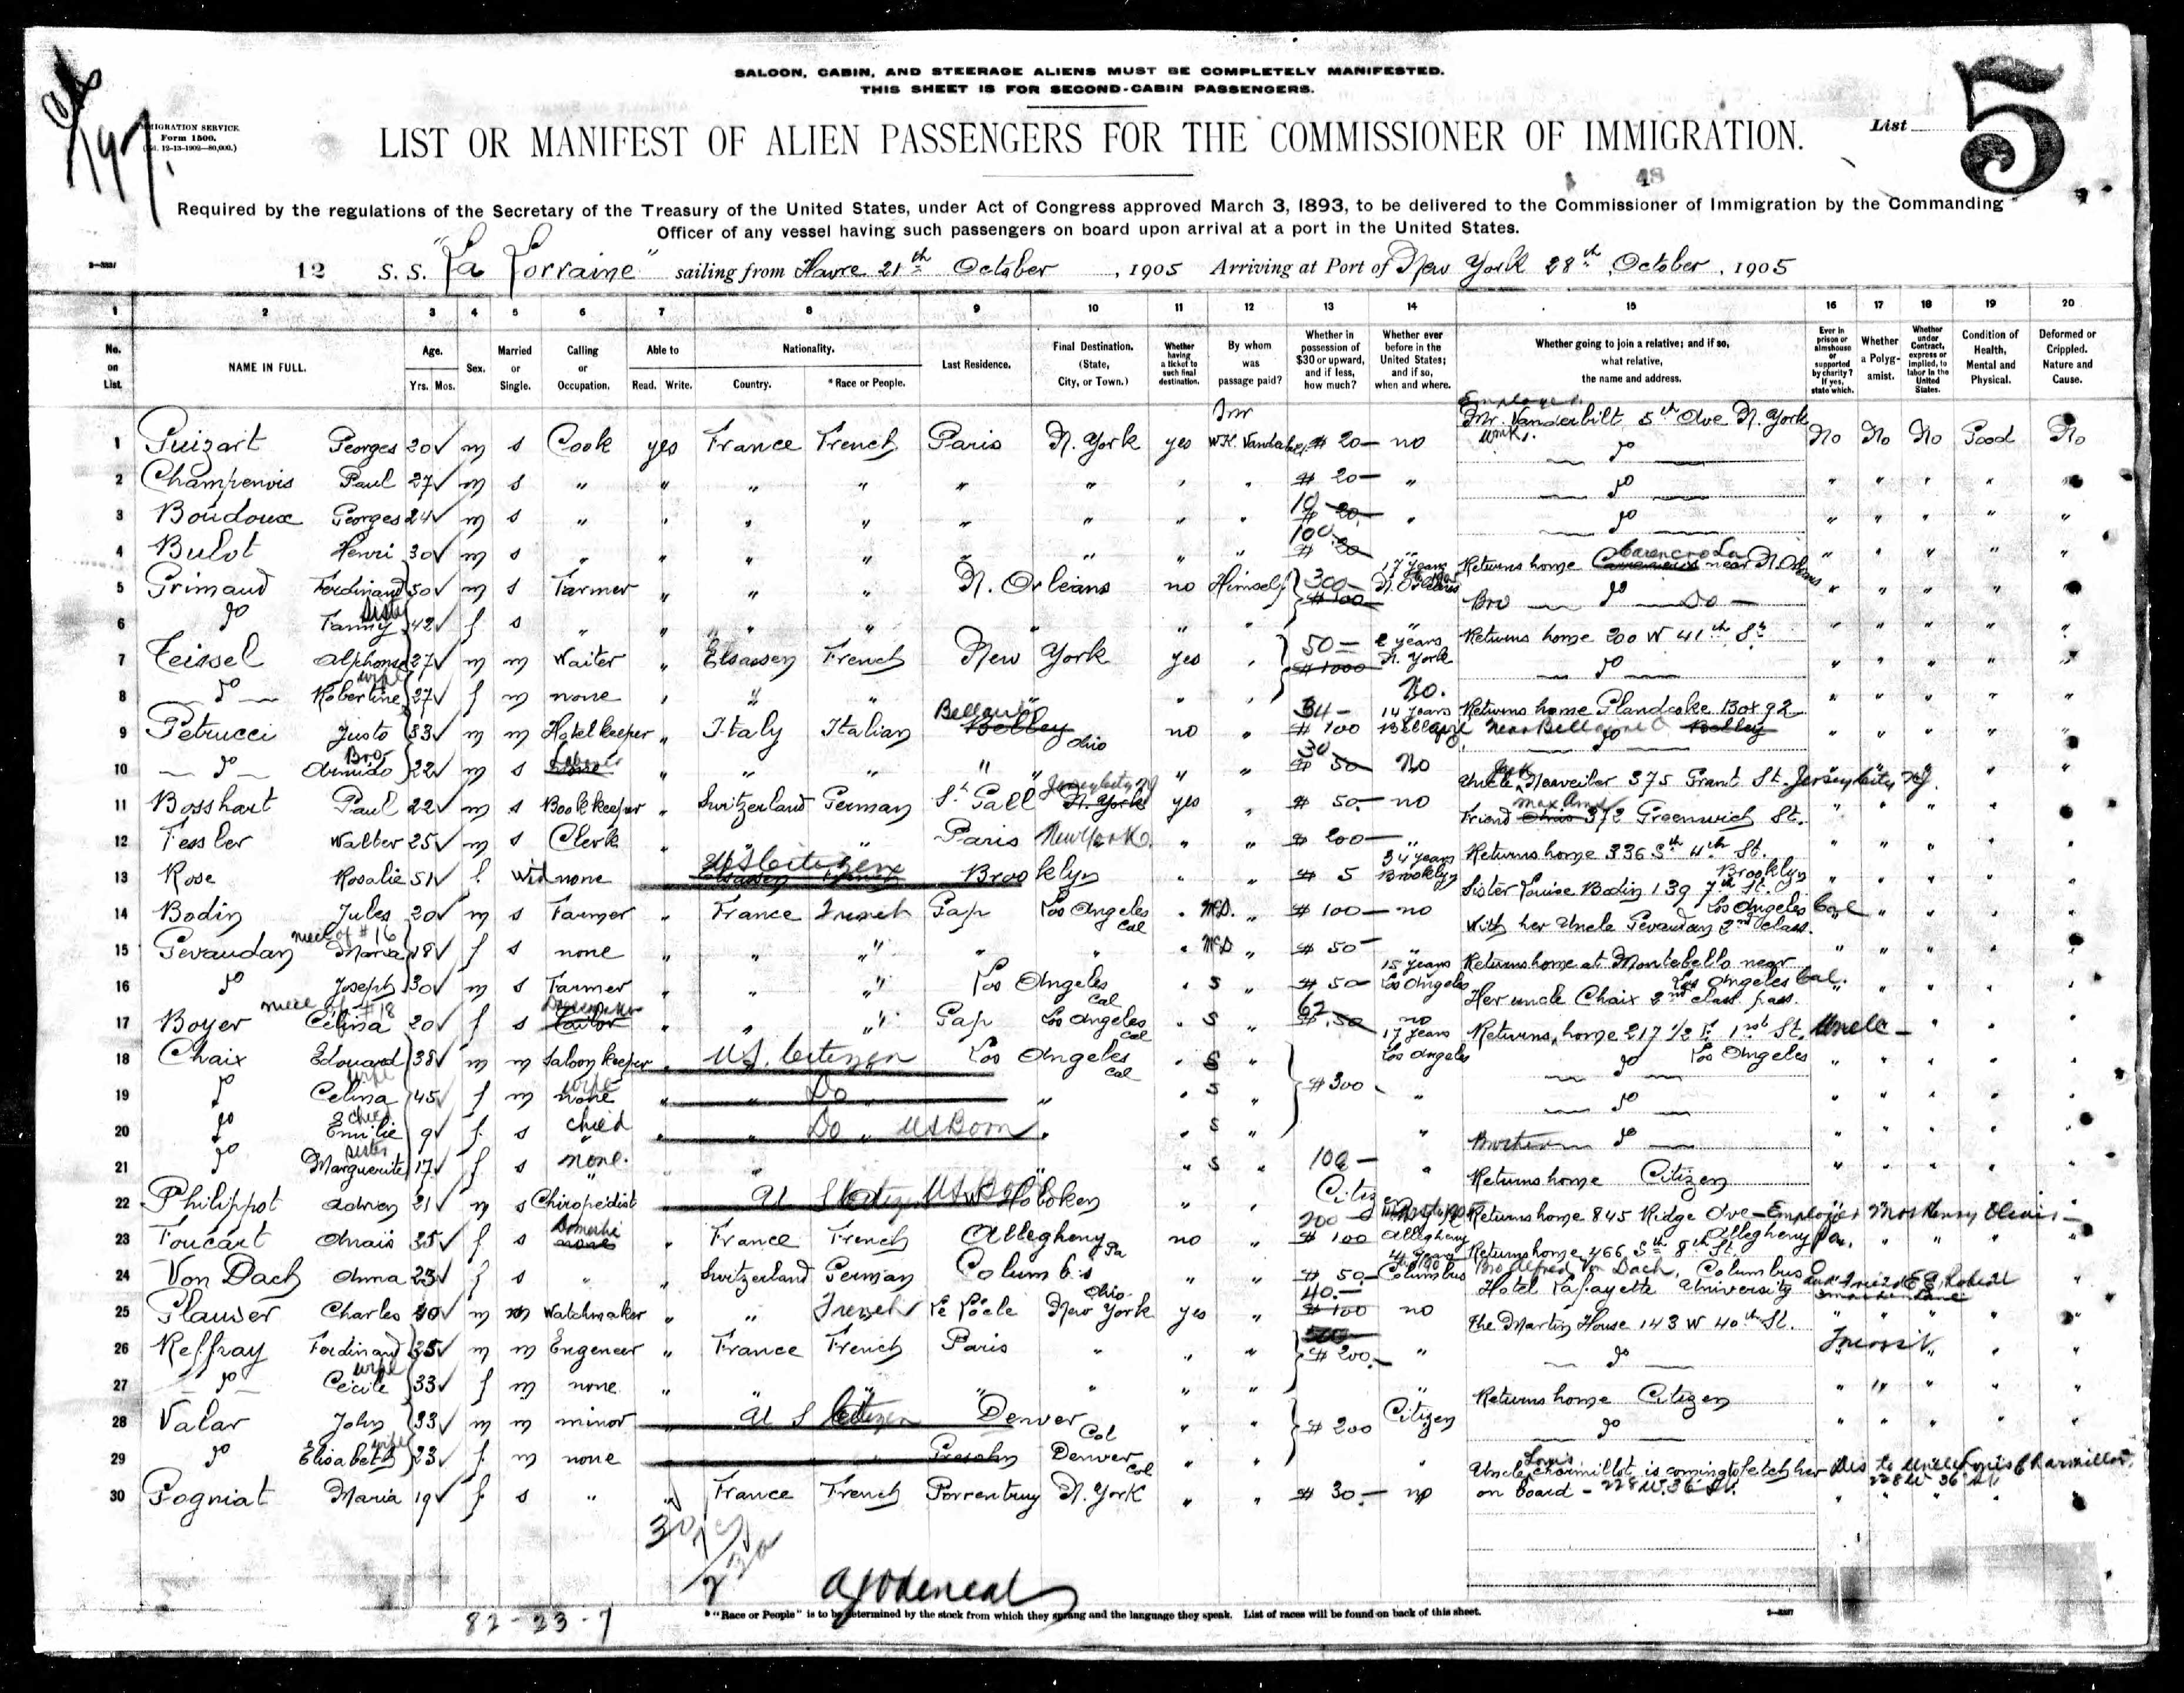 SALOON, CABIN, AND STEERAGE ALIENS MUST BE COMPLETELY MANIFESTED.
THIS SHEET IS FOR SECOND-CABIN PASSENGERS.
IMMIGRATION SERVICE.
Form 1500.
LIST OR MANIFEST OF ALIEN PASSENGERS FOR THE COMMISSIONER OF IMMIGRATION.
List 5
48
Required by the regulations of the Secretary of the Treasury of the United States, under Act of Congress approved March 3, 1893, to be delivered to the Commissioner of Immigration by the Commanding
Officer of any vessel having such passengers on board upon arrival at a port in the United States.
12 S. S. "La Lorraine" sailing from Havre 21th October, 1905 Arriving at Port of New York 28th October, 1905
1 2 3 4 5 6 7 8 9 10 11 12 13 14 15 16 17 18 19 20
No. on List. NAME IN FULL. Age. Yrs. Mos. Sex. Married or Single. Calling or Occupation. Able to Read. Write. Nationality. Country. *Race or People. Last Residence. Final Destination. (State, City, or Town.) Whether having a ticket to such final destination. By whom was passage paid? Whether in possession of $30 or upward, and if less, how much? Whether ever before in the United States; and if so, when and where. Whether going to join a relative; and if so, what relative, the name and address. Ever in prison or almshouse or supported by charity? If yes, state which. Whether a Polygamist. Whether under Contract, express or implied, to labor in the United States. Condition of Health, Mental and Physical. Deformed or Crippled. Nature and Cause.
1 Guizart Georges 20 m s Cook yes France French Paris N. York yes W.K. $ 20 — no Mr. Vanderbilt 5th Ave N. York No No No Good No
2 Champenois Paul 27 m s " " " " " " " " $ 20 — " do
3 Boudoux Georges 24 m s " " " " " " " " 10 $ 20 " do
4 Bulot Henri 30 m s " " " " " " " " 100 $ 20 " do
5 Grimaud Ferdinand 50 m s Farmer " " " N. Orleans no Himself 300 $ 100 17 years N. Orleans Returns home Carencro La near N. Orleans
6 do Fanny sister 42 f s " " " " " " " Bro do
7 Teissel Alphonse 27 m m Waiter " Elsassen French New York yes " 50 — $ 1000 2 years N. York Returns home 200 W 41th St
8 do Robertine wife 27 f m none " " " " " No. do
9 Petrucci Justo 33 m m Hotel keeper " Italy Italian Bellaire Ohio no " 34 — $ 100 14 years Returns home Box 92 near
10 do Bro 22 m s " " " " " " 30 $ 50 No do
11 Bosshart Paul 22 m s Bookkeeper " Switzerland German St Gall Jersey City NJ N. York yes " $ 50. — no Uncle 375 Grant St. Jersey City NJ.
12 Fessler Walter 25 m s Clerk " " " Paris New York " " $ 200 — " Friend 372 Greenwich St.
13 Rose Rosalie 51 f. wid none US Citizen Brooklyn " " $ 5 34 years Brooklyn Returns home 336 Sth 4th St. Brooklyn
14 Bodin Jules 20 m s Farmer " France French Gap Los Angeles Cal " " $ 100 — no Sister Louise Bodin 139 7th St. Los Angeles Cal
15 Gevaudan Maria niece of #16 18 f s none " " " " " " " $ 50 — " With her Uncle Gevaudan 2nd class.
16 do Joseph 30 m s Farmer " " " Los Angeles Cal " S " $ 50 — 15 years Los Angeles Returns home at Montebello near Los Angeles Cal.
17 Boyer Celina niece of #18 20 f s Dressmaker " " " Gap Los Angeles Cal " S " 62 $ 50 no Her uncle Chaix 2nd class pass.
18 Chaix Edouard 38 m m Saloon keeper " U.S. Citizen Los Angeles Cal " S " $ 300 17 years Los Angeles Returns home 217 1/2 E 1rst St. Los Angeles Uncle —
19 do Celina wife 45 f m none wife " Do " " S " " do
20 do Emilie child 9 f. s child " Do US Born " " S " " do
21 do Marguerite sister 17 f s none. " " " S " 100 — " do
22 Philippot Adrien 21 m s Chiropodist U S Citizen Hoboken " " Citizen Returns home Citizen
23 Foucart Anais 35 f s Domestic none " France French Allegheny Pa no " 200 $ 100 Allegheny Returns home 845 Ridge Ave — Employer Allegheny Pa.
24 Von Dach Anna 23 f s " " Switzerland German Columbus Ohio " " $ 50 — Columbus Returns home 466 Sth 8th St. Bro Alfred Von Dach, Columbus O
25 Glauser Charles 40 m m Watchmaker " " French Le Locle New York yes " 40. — $ 100 no Hotel Lafayette University
26 Reffray Ferdinand 35 m m Engeneer " France French Paris " " " $ 200. — " The Martin House 143 W 40th St.
27 do Cécile wife 33 f m none " " " " " " " " do
28 Valar John 33 m m minor U S Citizen Denver Col " " $ 200 Citizen Returns home Citizen
29 do Elisabeth wife 23 f. m none " Denver Col " " " do
30 Pogniat Maria 19 f. s " " France French Porrentruy N. York " " $ 30. — no Uncle Louis Charmillot is coming to fetch her on board — 228 W. 36 St.
82 - 23 - 7
* "Race or People" is to be determined by the stock from which they sprang and the language they speak. List of races will be found on back of this sheet.